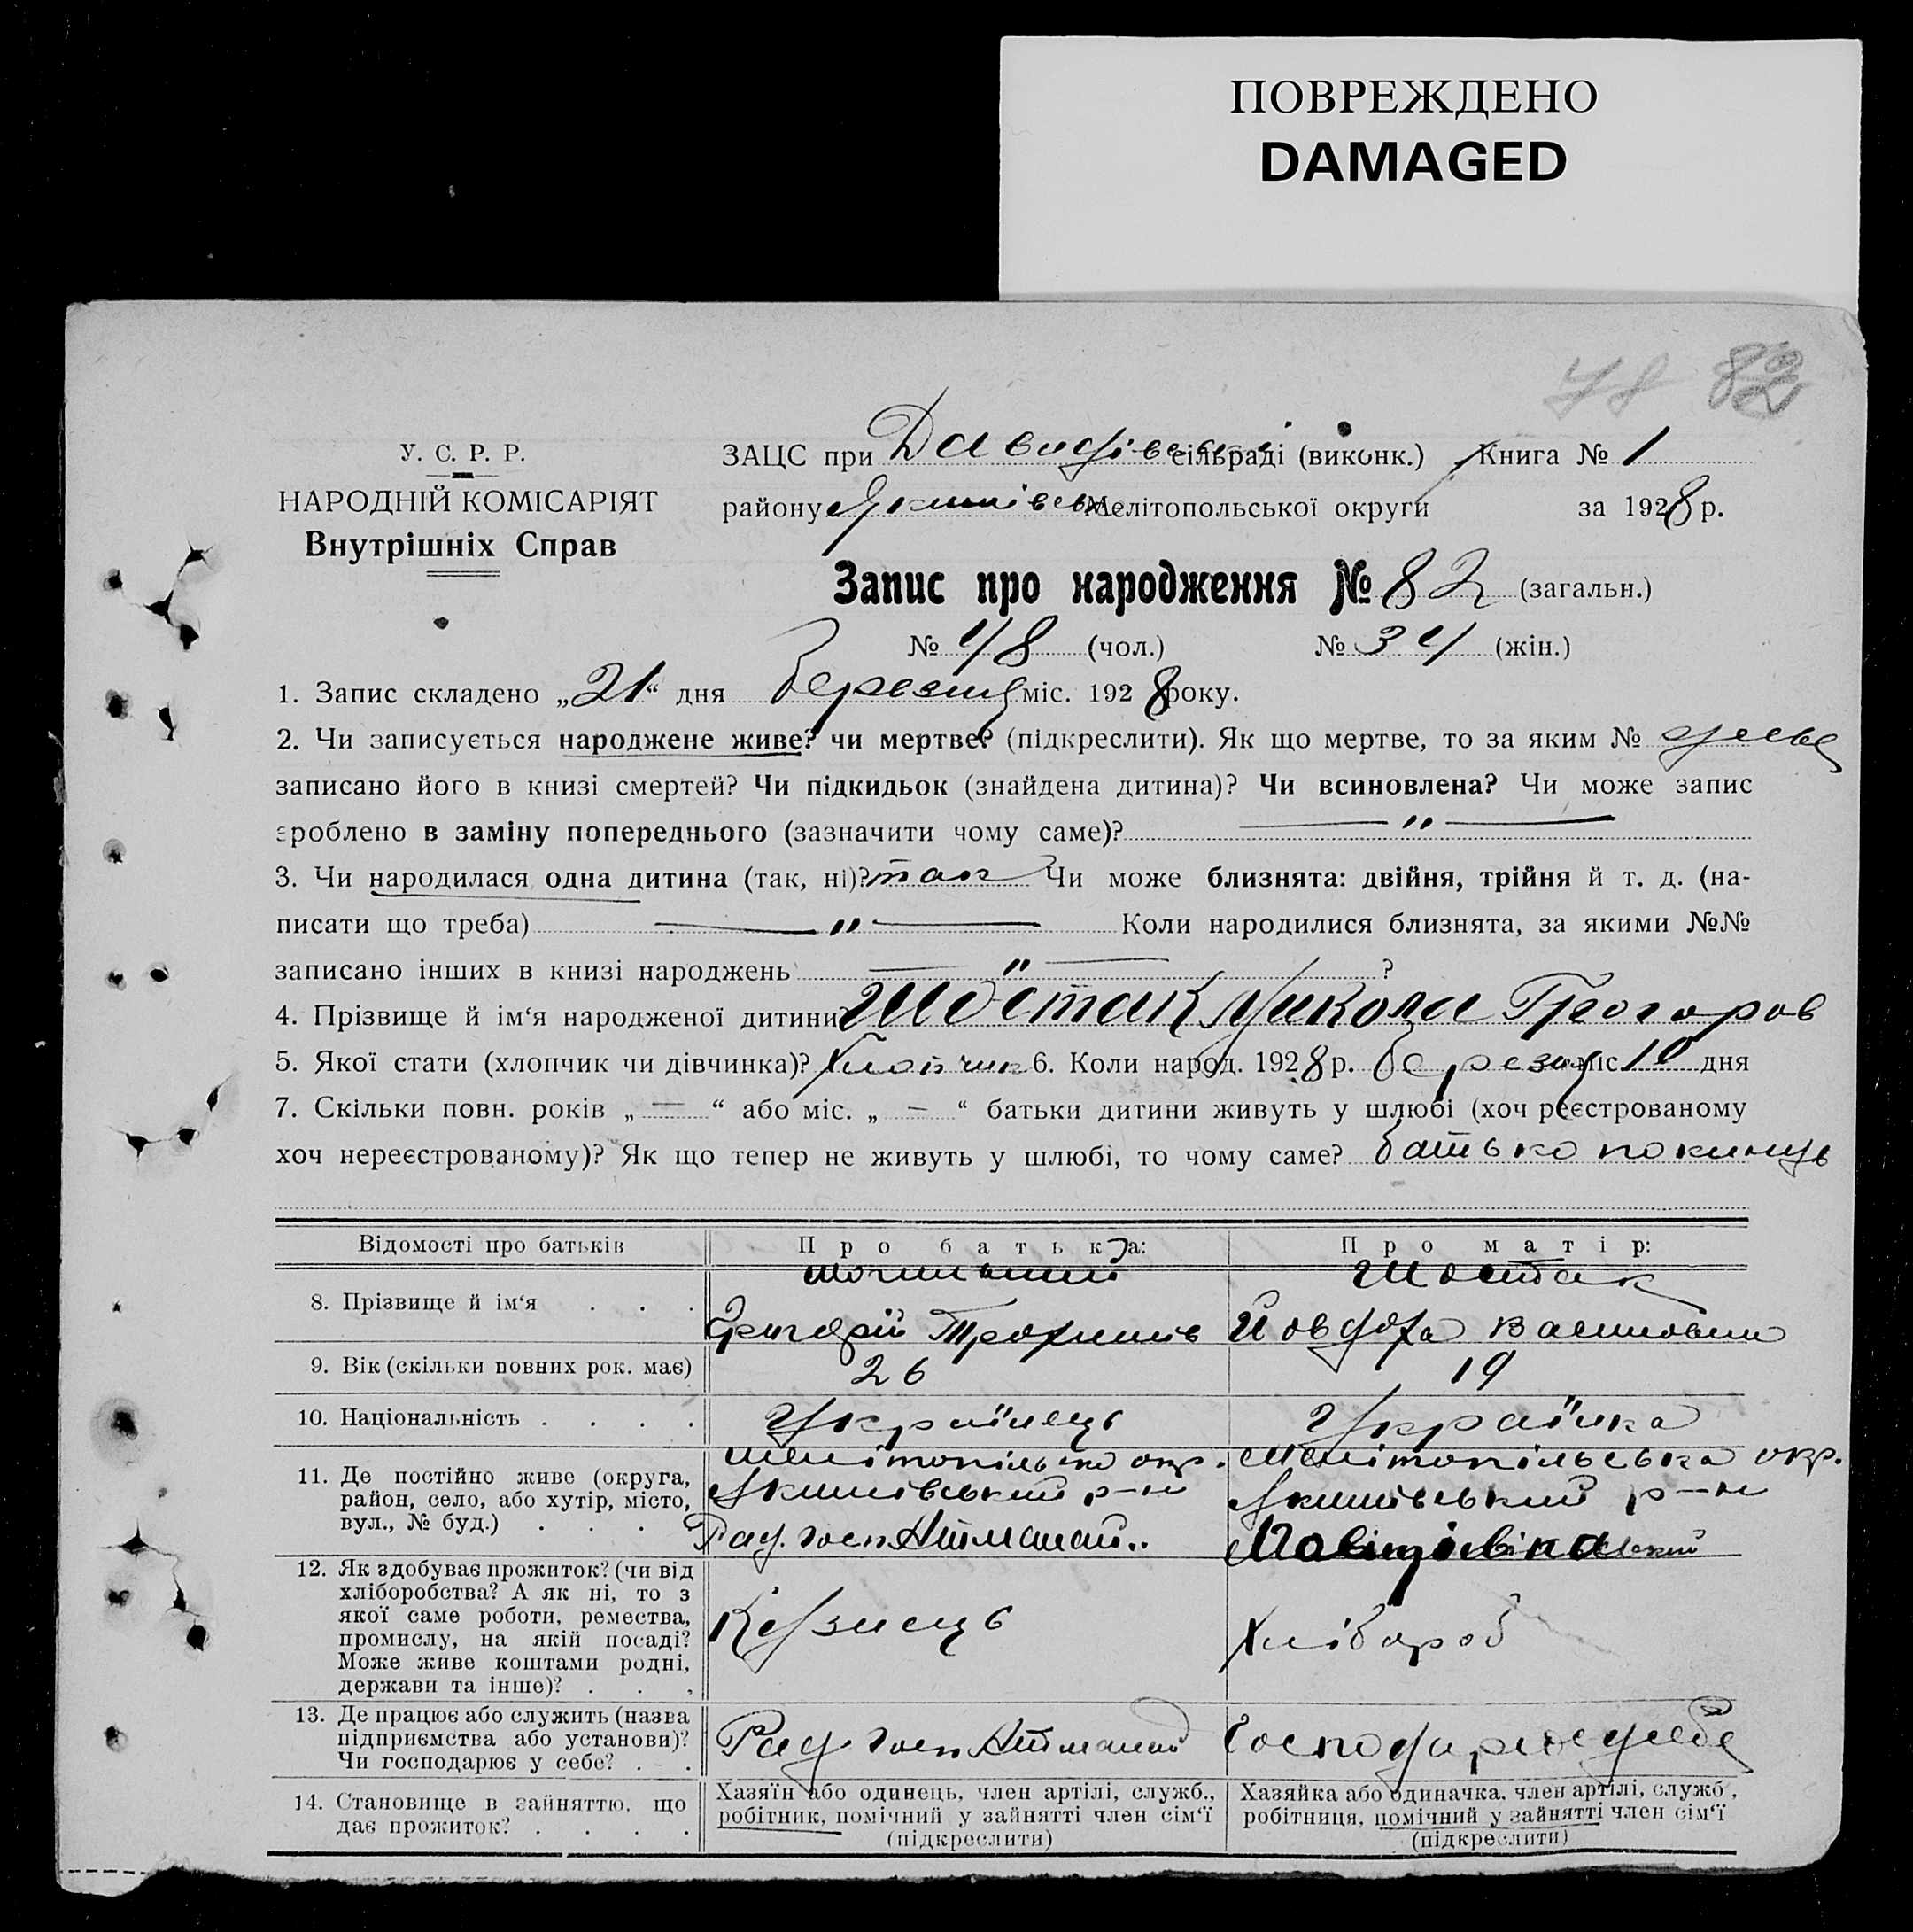 ПОВРЕЖДЕНО
DAMAGED
48 82
У. С. Р. Р.
НАРОДНІЙ КОМІСАРІЯТ
Внутрішніх Справ
ЗАЦС при Давидівськ сільраді (виконк.) Книга № 1
району Якимівськ Мелітопольської округи за 1928 р.
Запис про народження № 82 (загальн.)
№ 48 (чол.) № 34 (жін.)
1. Запис складено „21“ дня березня міс. 1928 року.
2. Чи записується народжене живе? чи мертве? (підкреслити). Як що мертве, то за яким №
записано його в книзі смертей? Чи підкидьок (знайдена дитина)? Чи всиновлена? Чи може запис
зроблено в заміну попереднього (зазначити чому саме)? — „ —
3. Чи народилася одна дитина (так, ні)? так Чи може близнята: двійня, трійня й т. д. (на-
писати що треба) — „ — Коли народилися близнята, за якими №№
записано інших в книзі народжень — „ — ?
4. Прізвище й ім‘я народженої дитини Шостак Микола Грегоров
5. Якої стати (хлопчик чи дівчинка)? Хлопчик 6. Коли народ. 1928 р. березня міс 10 дня
7. Скільки повн. років „ — “ або міс. „ — “ батьки дитини живуть у шлюбі (хоч реєстрованому
хоч нереєстрованому)? Як що тепер не живуть у шлюбі, то чому саме? батько покинув
Відомості про батьків Про батька: Про матір:
Шостак
8. Прізвище й ім‘я . . . Григорій Трофимів Йовдоха Василовна
9. Вік (скільки повних рок. має) 26 19
10. Національність . . . . Українець Українка
Мелітопільська окр. Мелітопільська окр.
11. Де постійно живе (округа,
район, село, або хутір, місто,
вул., № буд.) . . .
Якимівський р-н Якимівський р-н
Рад. госп Атманай
12. Як здобуває прожиток? (чи від
хліборобства? А як ні, то з
якої саме роботи, ремества,
промислу, на якій посаді?
Може живе коштами родні,
держави та інше)? . . .
Кузнець Хлібороб
13. Де працює або служить (назва
підприємства або установи)?
Чи господарює у себе? . .
Рад. госп Атманай Господарює у себе
14. Становище в зайняттю, що
дає прожиток? . . . .
Хазяїн або одинець, член артілі, служб.,
робітник, помічний у зайнятті член сім‘ї
(підкреслити)
Хазяйка або одиначка, член артілі, служб.,
робітниця, помічний у зайнятті член сім‘ї
(підкреслити)